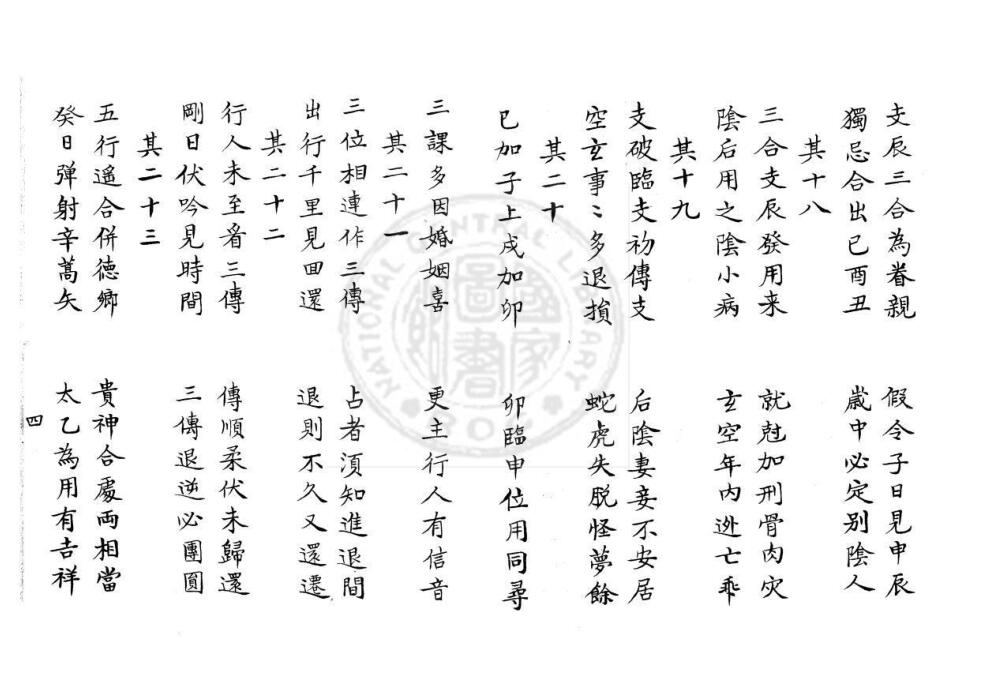 支辰三合為眷親　假令子日見申辰
獨忌合出巳酉丑　歲中必定別陰人
其十八
三合支辰發用来　就尅加刑骨肉灾
陰后用之陰小病　玄空年内迯亡乖
其十九
支破臨支初傳支　后陰妻妾不安居
空玄事〻多退損　蛇虎失脱怪夢餘
其二十
巳加子上戌加卯　卯臨申位用同尋
三課多因婚姻喜　更主行人有信音
其二十一
三位相連作三傳　占者須知進退間
出行千里見回還　退則不久又還遷
其二十二
行人未至看三傳　傳順柔伏未歸還
剛日伏吟見時間　三傳退逆必團圓
其二十三
五行遙合併德鄉　貴神合處両相當
癸日弹射辛蒿矢　太乙為用有吉祥
四
NATIONAL CENTRAL LIBRARY
國家圖書館